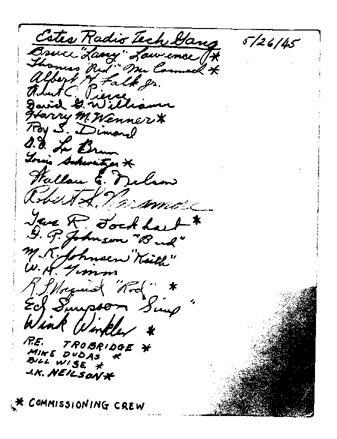 Estes Radio Tech Gang 5/26/45
Bruce "Larry" Lawrence *
Thomas "Red" Mc Cormack *
Albert H. Falk Jr.
Robt C. Pierce
David G. Williams
Harry M. Wenner *
Roy S. Dimond
Le Brun
Louis Schweitzer *
Wallace E. Nelson
Robert S. Naramore
R. Lockhart *
G. P. Johnson "Bud"
M. K. Johnson "Keith" *
W. H. Timm
"Rod" *
Ed Simpson "Simp"
Wink Winkler *
R.E. TROBRIDGE *
MIKE DUDAS *
BILL WISE *
J.K. NEILSON *
* COMMISSIONING CREW